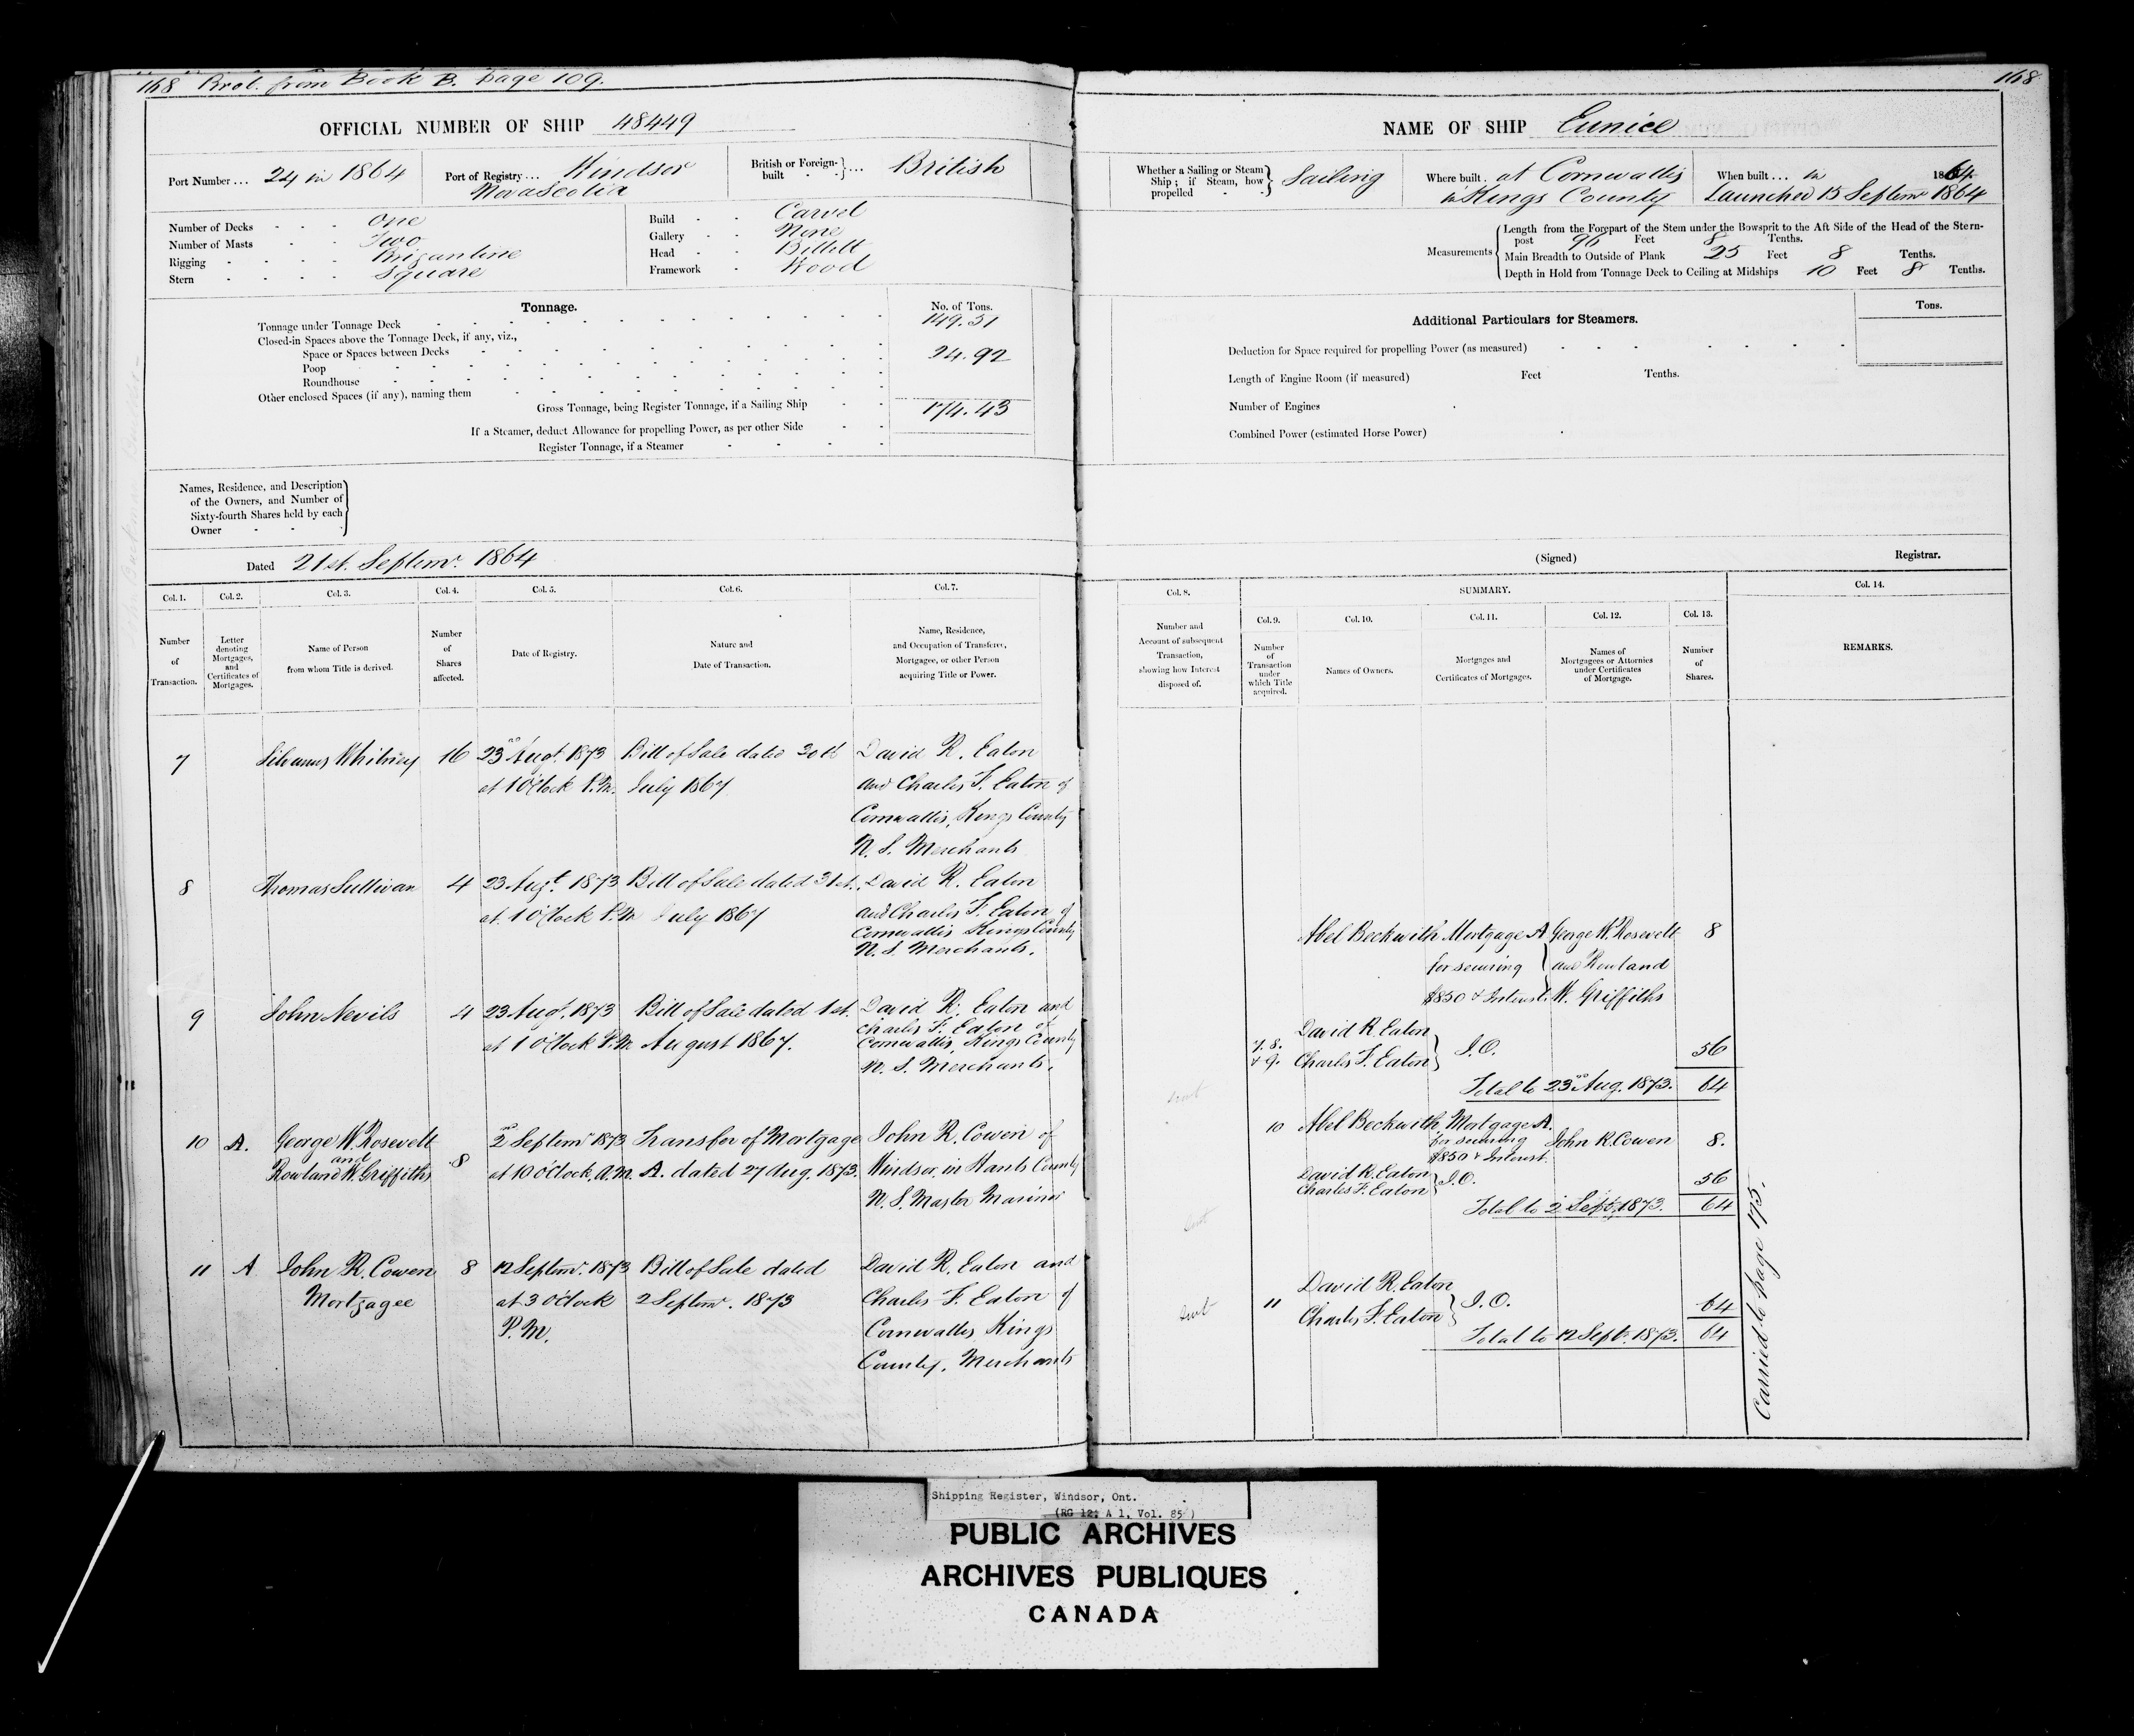 168 Brot. from Book B. page 109.
168
OFFICIAL NUMBER OF SHIP 48449
NAME OF SHIP Eunice
Port Number ... 24 in 1864
Port of Registry ... Windsor
Nova Scotia
British or Foreign-
built ... British
Whether a Sailing or Steam
Ship; if Steam, how
propelled
Sailing
Where built . at Cornwallis
in Kings County
When built ... in 1864
Launched 15 Septemr 1864
Number of Decks - - - One
Number of Masts - - Two
Rigging - - - - Brigantine
Stern - - - - Square
Build - - Carvel
Gallery - - None
Head - - Billett
Framework - Wood
Measurements
Length from the Forepart of the Stem under the Bowsprit to the Aft Side of the Head of the Stern-
post 96 Feet 8 Tenths.
Main Breadth to Outside of Plank 25 Feet 8 Tenths.
Depth in Hold from Tonnage Deck to Ceiling at Midships 10 Feet 8 Tenths.
Tonnage.
No. of Tons.
Tonnage under Tonnage Deck 149.51
Closed-in Spaces above the Tonnage Deck, if any, viz.,
Space or Spaces between Decks 24.92
Poop
Roundhouse
Other enclosed Spaces (if any), naming them
Gross Tonnage, being Register Tonnage, if a Sailing Ship 174.43
If a Steamer, deduct Allowance for propelling Power, as per other Side
Register Tonnage, if a Steamer
Additional Particulars for Steamers.
Tons.
Deduction for Space required for propelling Power (as measured)
Length of Engine Room (if measured) Feet Tenths.
Number of Engines
Combined Power (estimated Horse Power)
Names, Residence, and Description
of the Owners, and Number of
Sixty-fourth Shares held by each
Owner
Dated 21st. Septemr. 1864
(Signed) Registrar.
Col. 1.
Number
of
Transaction.
Col. 2.
Letter
denoting
Mortgages,
and
Certificates of
Mortgages.
Col. 3.
Name of Person
from whom Title is derived.
Col. 4.
Number
of
Shares
affected.
Col. 5.
Date of Registry.
Col. 6.
Nature and
Date of Transaction.
Col. 7.
Name, Residence,
and Occupation of Transferee,
Mortgagee, or other Person
acquiring Title or Power.
Col. 8.
Number and
Account of subsequent
Transaction,
showing how Interest
disposed of.
SUMMARY.
Col. 9.
Number
of
Transaction
under
which Title
acquired.
Col. 10.
Names of Owners.
Col. 11.
Mortgages and
Certificates of Mortgages.
Col. 12.
Names of
Mortgagees or Attornies
under Certificates
of Mortgage.
Col. 13.
Number
of
Shares.
Col. 14.
REMARKS.
7 Whitney 16 23rd Augt. 1873 Bill of Sale dated 30th David R. Eaton
at 1 O'Clock P.M. July 1867 and Charles F. Eaton of
Cornwallis, Kings County
N. S. Merchants
8 Thomas Sullivan 4 23 Augt. 1873 Bill of Sale dated 31st. David R. Eaton
at 1 O'Clock P.M July 1867 and Charles F. Eaton of
Cornwallis Kings County
N. S. Merchants.
9 John Nevils 4 23 Augt. 1873 Bill of Sale dated 1st. David R. Eaton and
at 1 O'Clock P.M August 1867. Charles F. Eaton of
Cornwallis, Kings County
N. S. Merchants.
10 A. George W. Rosevelt
and
Rowland W. Griffiths 8 2nd Septemr 1873 Transfer of Mortgage John R. Cowen of
at 10 O'Clock, a.m. A. dated 27 Aug. 1873. Windsor in Hants County
N. S. Master Mariner
11 A John R. Cowen 8 12 Septemr. 1873 Bill of Sale dated David R. Eaton and
Mortgagee at 3 O'Clock 2 Septemr. 1873 Charles F. Eaton of
P.M. Cornwallis Kings
County, Merchants
Abel Beckwith Mortgage A George W. Rosevelt 8
for securing and Rowland
$850 & Interest. W. Griffiths
7. 8.
& 9. David R. Eaton
Charles F. Eaton J.O. 56
Total to 23rd Aug. 1873. 64
10 Abel Beckwith Mortgage A.
for securing John R. Cowen 8.
$850 & Interest.
David R. Eaton
Charles F. Eaton J.O. 56
Total to 2 Sept. 1873. 64
11 David R. Eaton
Charles F. Eaton J.O. 64
Total to 12 Sept. 1873. 64
Carried to page 175.
Shipping Register, Windsor, Ont.
(RG 12, A 1, Vol. 85)
PUBLIC ARCHIVES
ARCHIVES PUBLIQUES
CANADA